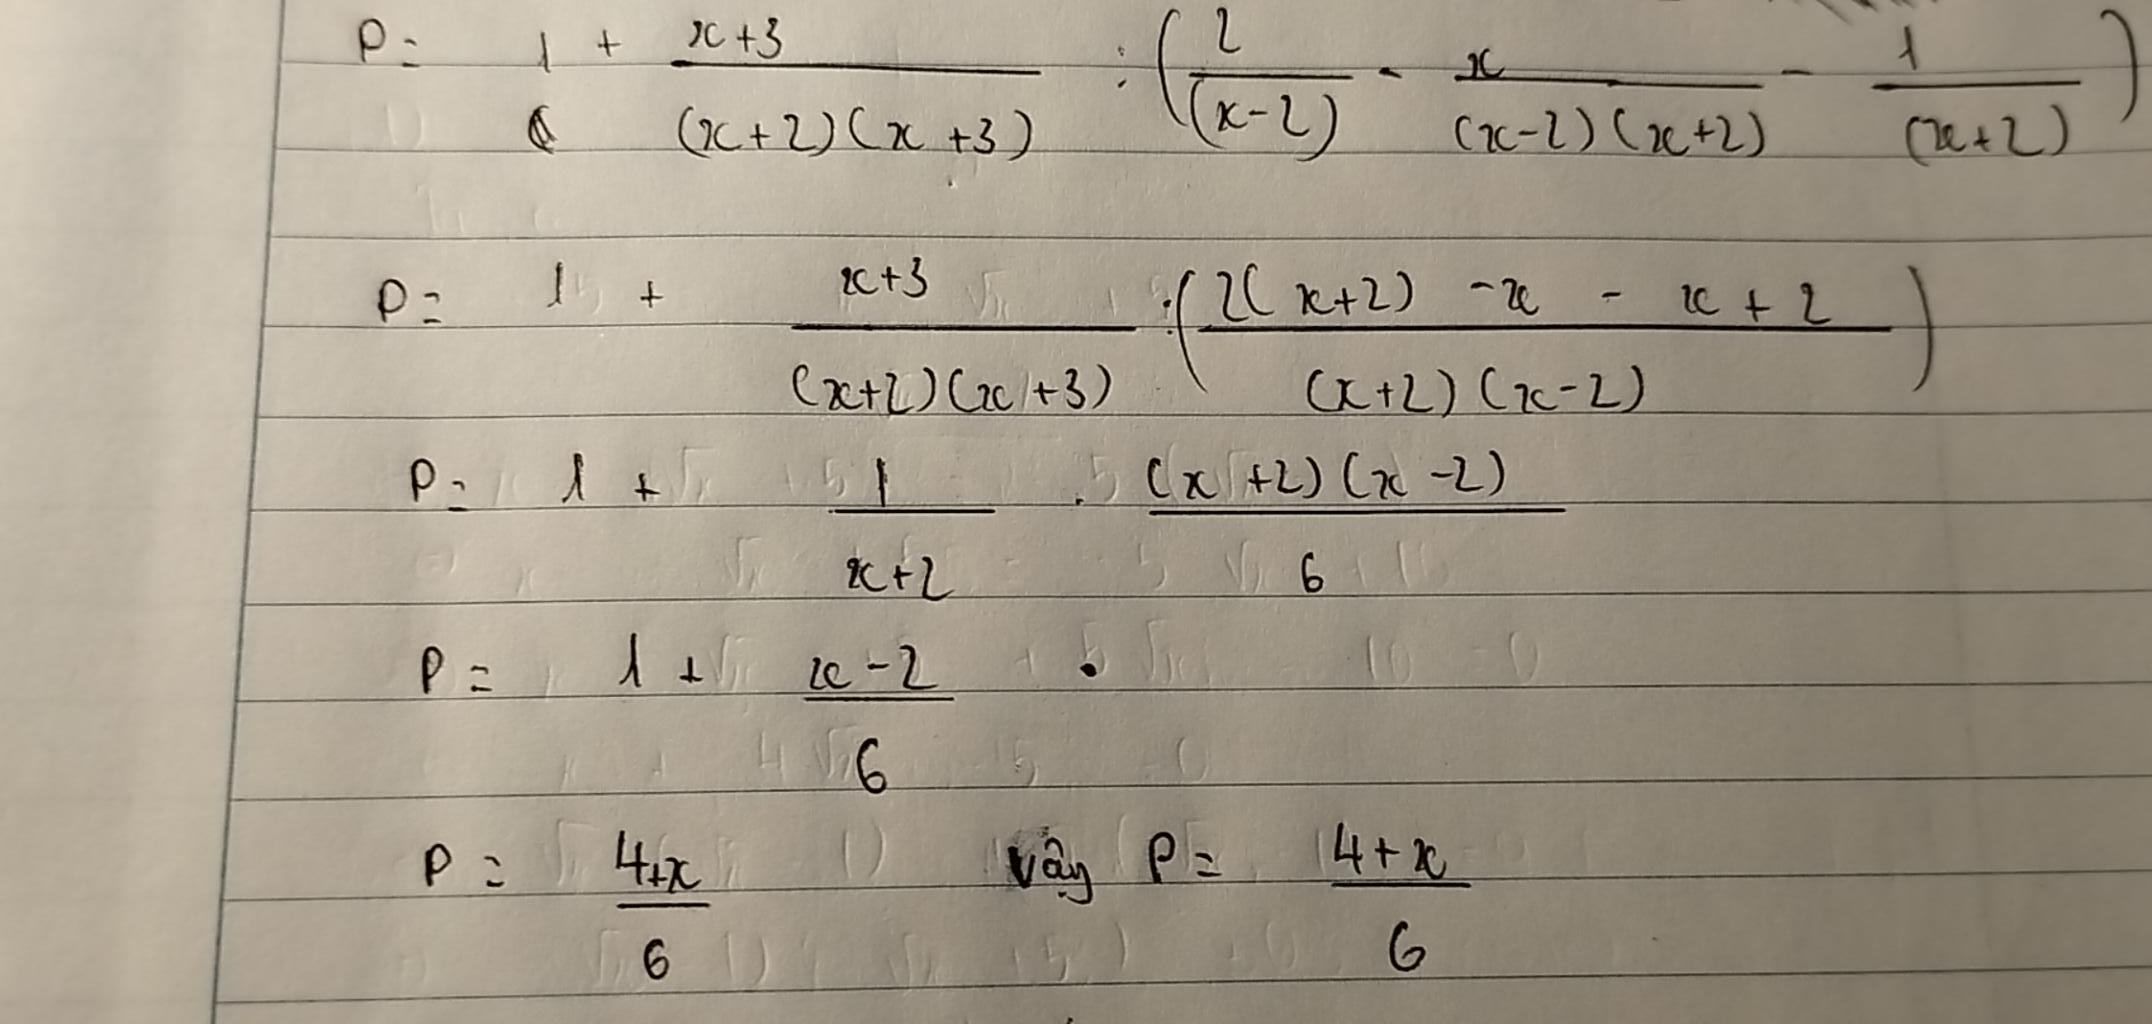 P = 1 + \frac{x+3}{(x+2)(x+3)} : \left( \frac{2}{(x-2)} - \frac{x}{(x-2)(x+2)} - \frac{1}{(x+2)} \right)
P = 1 + \frac{x+3}{(x+2)(x+3)} : \left( \frac{2(x+2) - x - x + 2}{(x+2)(x-2)} \right)
P = 1 + \frac{1}{x+2} . \frac{(x+2)(x-2)}{6}
P = 1 + \frac{x-2}{6}
P = \frac{4+x}{6} vậy P = \frac{4+x}{6}